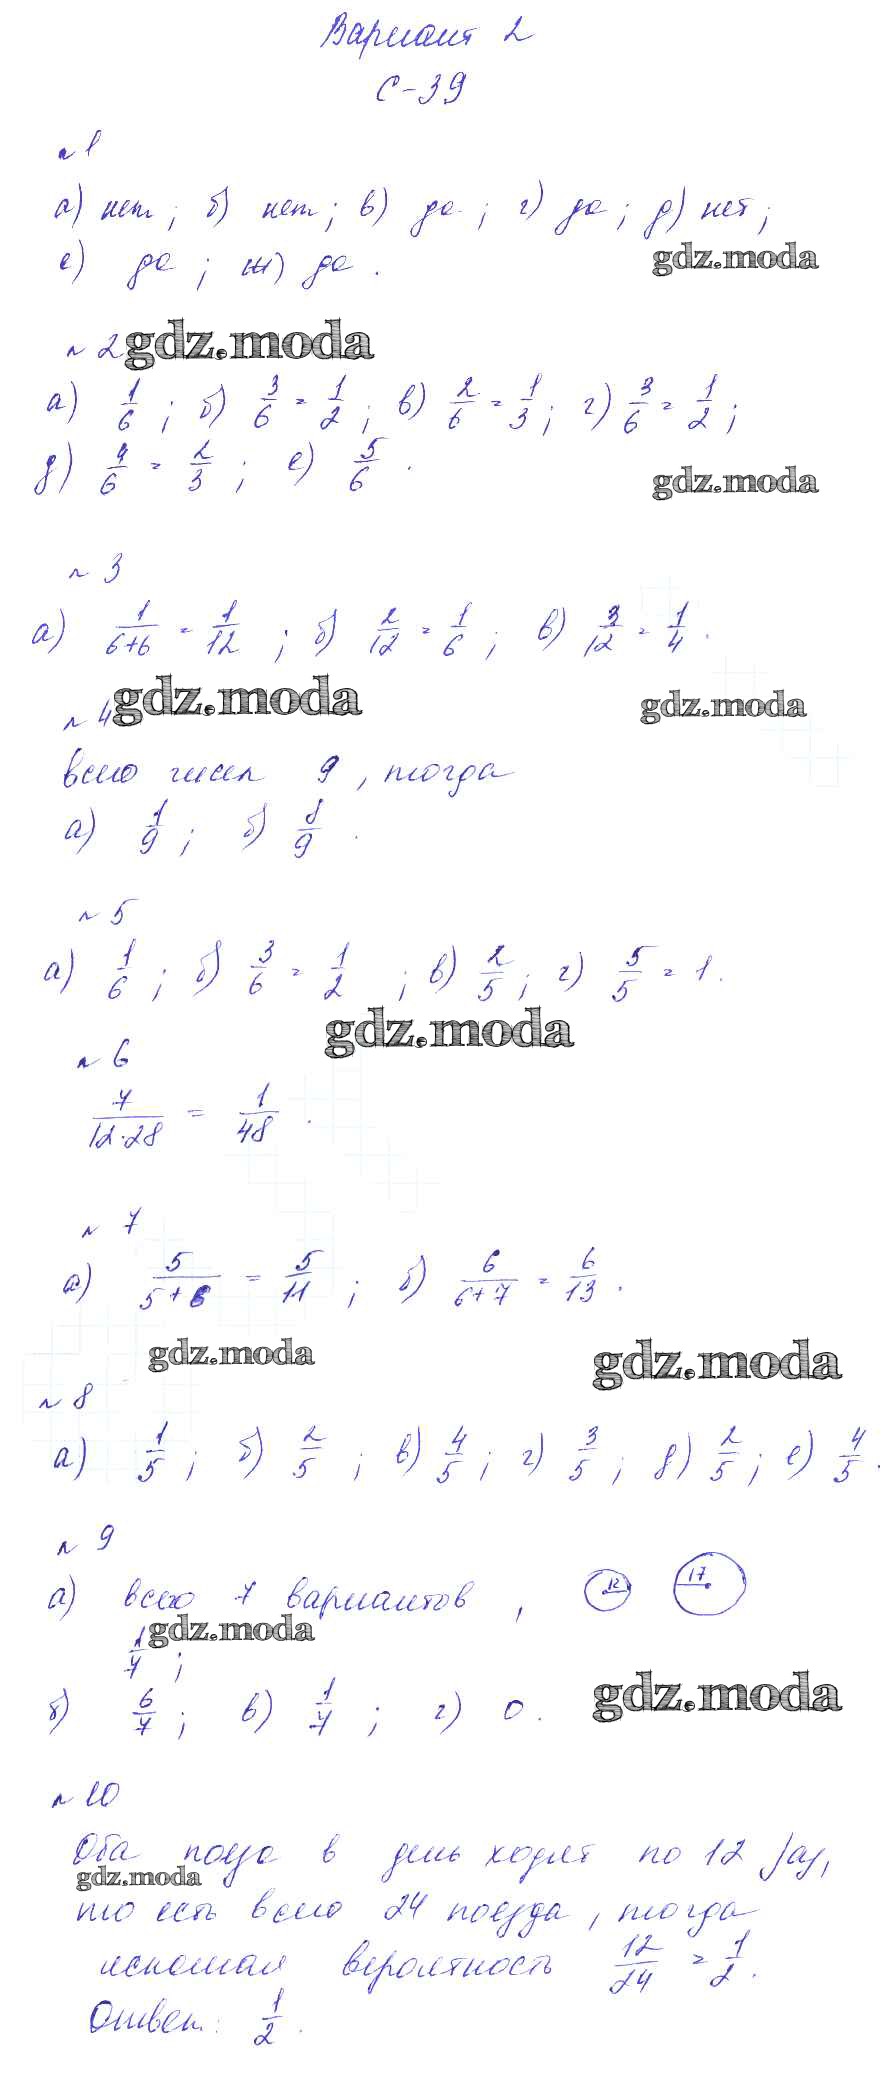 Вариант 2
С-39
№1
а) нет; б) нет; в) да; г) да; д) нет;
е) да; ж) да.
gdz.moda
№2 gdz.moda
а) 1/6; б) 3/6 = 1/2; в) 2/6 = 1/3; г) 3/6 = 1/2;
д) 4/6 = 2/3; е) 5/6.
gdz.moda
№3
а) 1/(6+6) = 1/12; б) 2/12 = 1/6; в) 3/12 = 1/4.
№4 gdz.moda gdz.moda
всего чисел 9, тогда
а) 1/9; б) 8/9.
№5
а) 1/6; б) 3/6 = 1/2; в) 2/5; г) 5/5 = 1.
gdz.moda
№6
7/(12·28) = 1/48.
№7
а) 5/(5+6) = 5/11; б) 6/(6+7) = 6/13.
gdz.moda gdz.moda
№8
а) 1/5; б) 2/5; в) 4/5; г) 3/5; д) 2/5; е) 4/5.
№9
а) всего 7 вариантов, 12 17
1/7; gdz.moda
б) 6/7; в) 1/7; г) 0. gdz.moda
№10
Оба поезда в день ходят по 12 раз,
gdz.moda
то есть всего 24 поезда, тогда
искомая вероятность 12/24 = 1/2.
Ответ: 1/2.